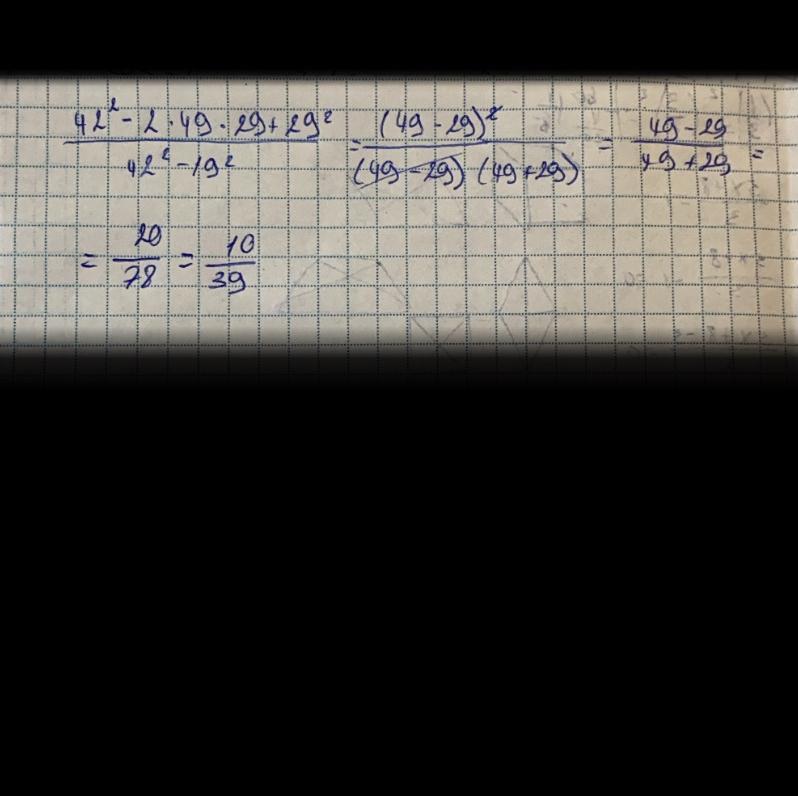 \frac{42^2 - 2 \cdot 49 \cdot 29 + 29^2}{42^2 - 19^2} = \frac{(49 - 29)^2}{(49 - 29)(49 + 29)} = \frac{49 - 29}{49 + 29} =
= \frac{20}{78} = \frac{10}{39}